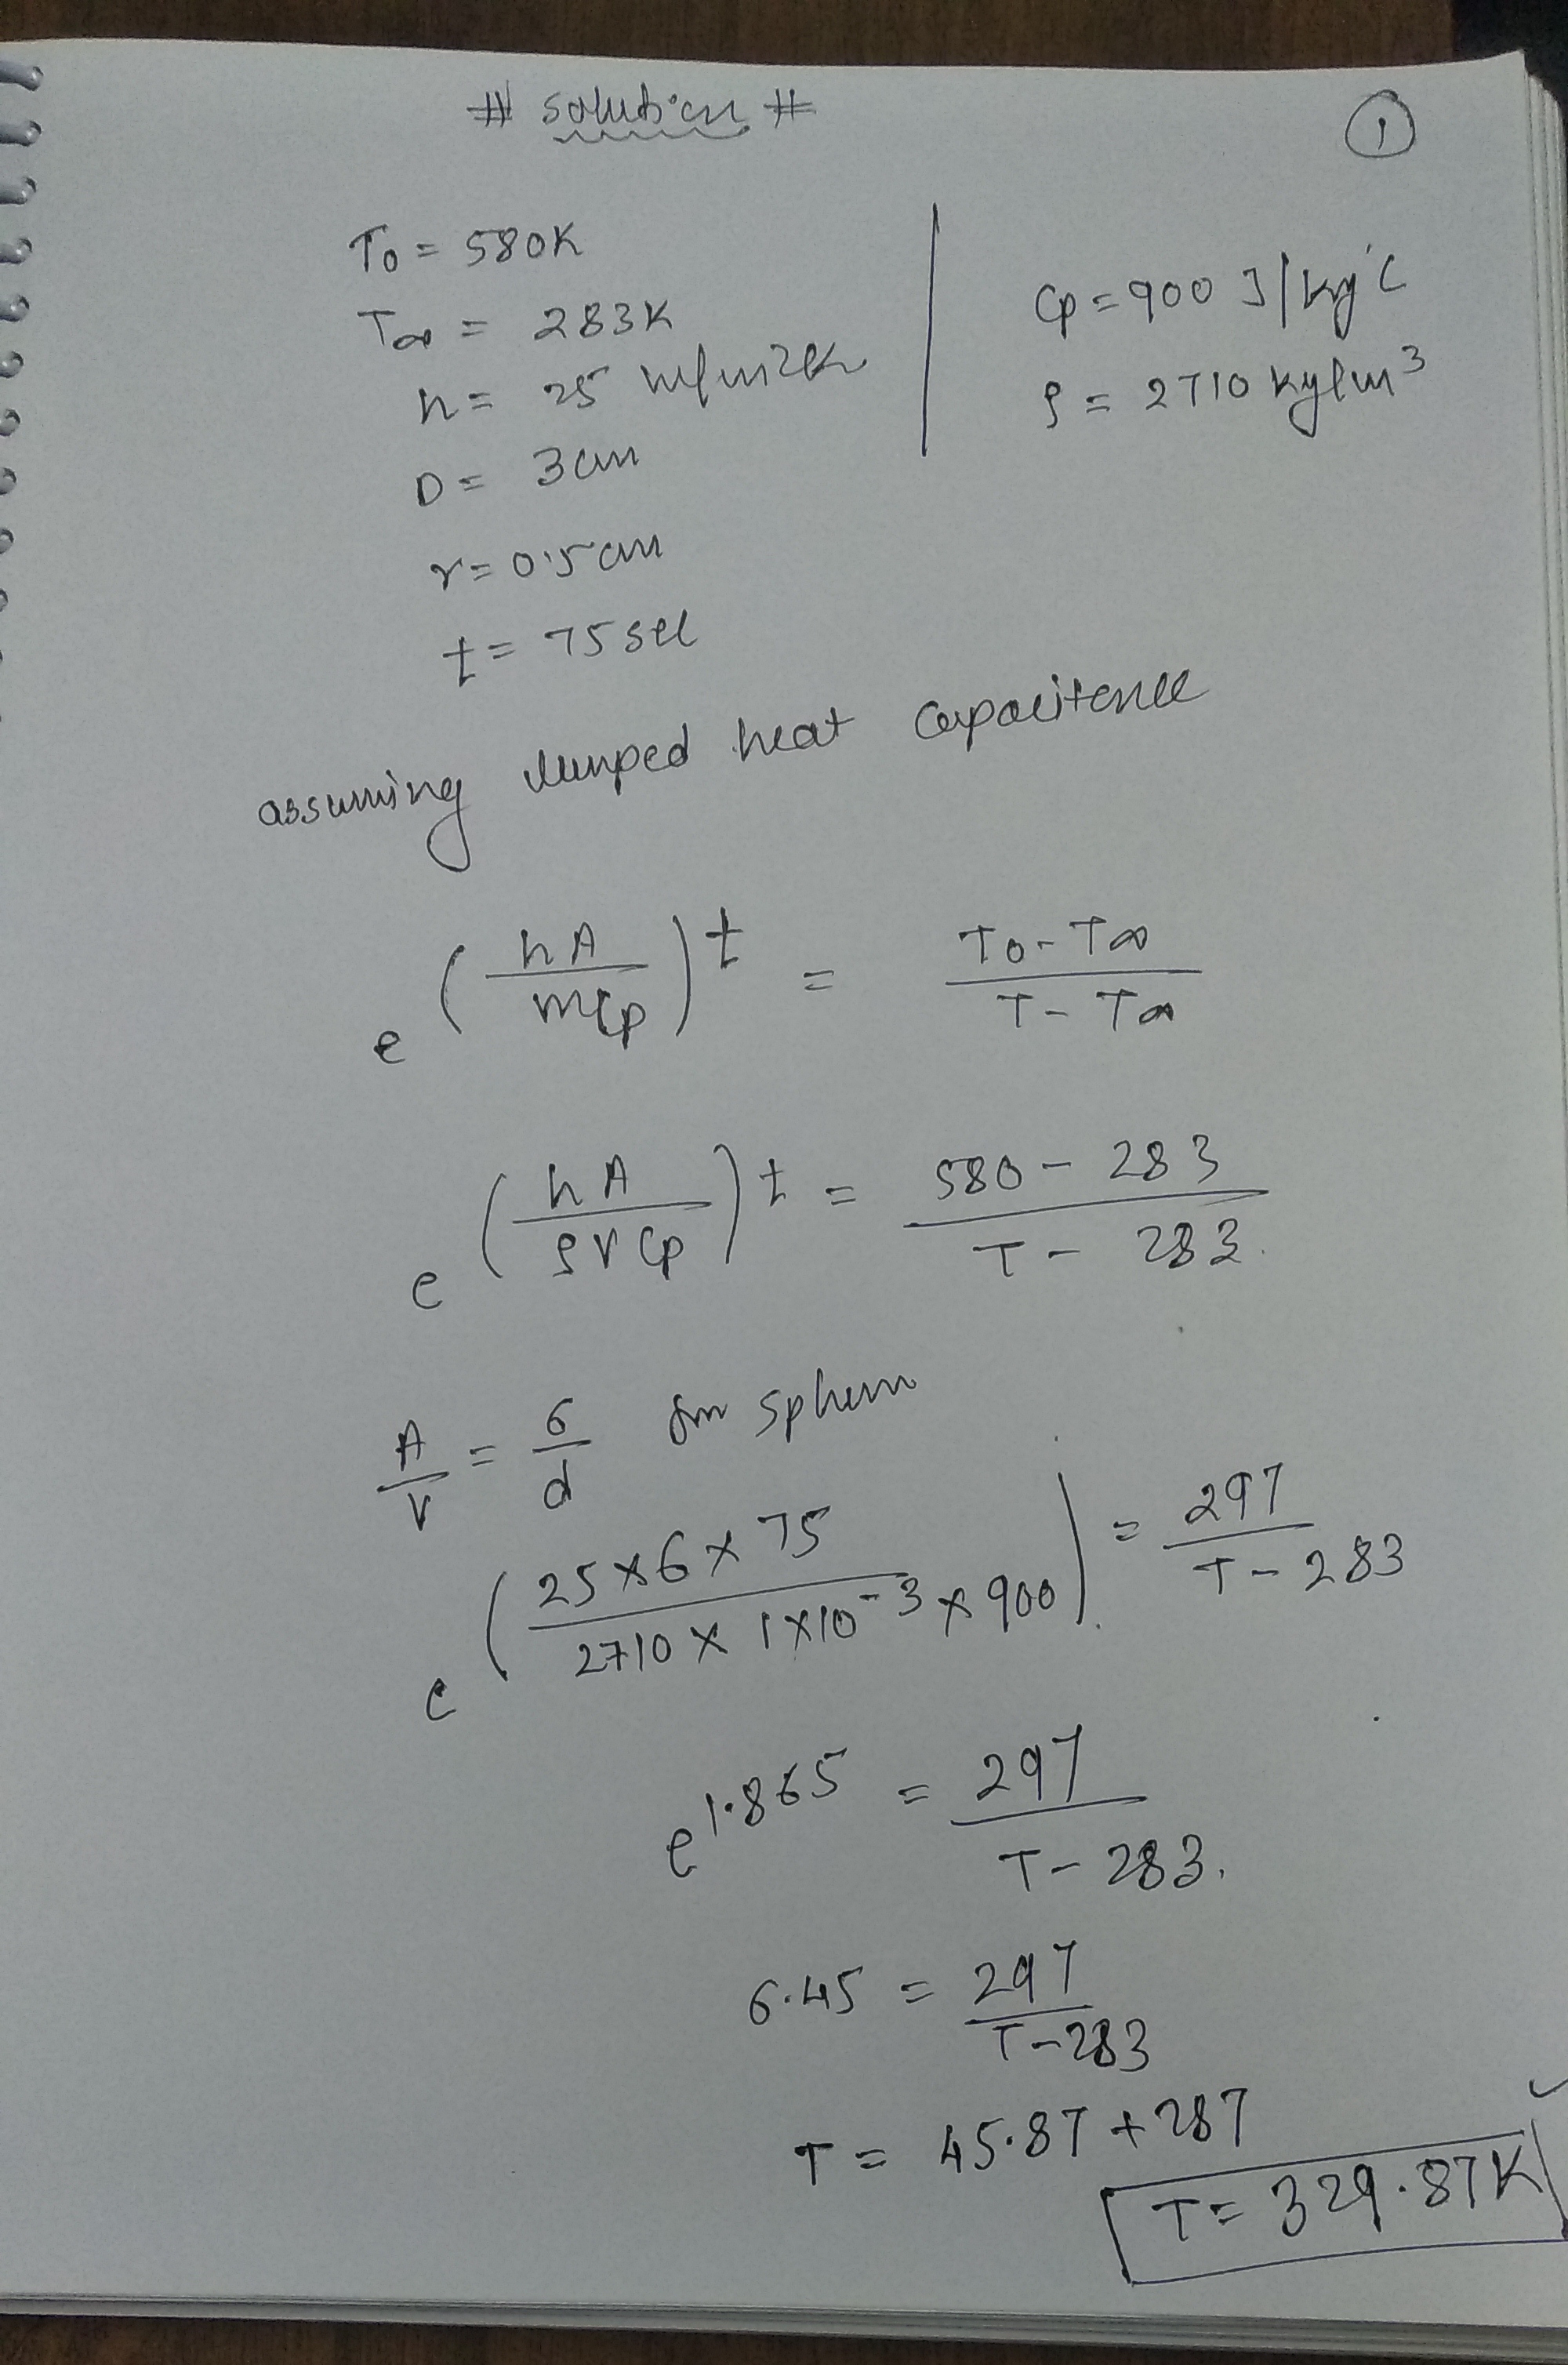 # solution #
1
T₀ = 580K
T∞ = 283K
h = 25 w/m2k
D = 3 cm
r = 0.5 cm
t = 75 sec
Cp = 900 J/kg°C
ρ = 2710 kg/m³
assuming lumped heat capacitence
e^(hA/mCp)t = T₀ - T∞ / T - T∞
e^(hA/ρVCp)t = 580 - 283 / T - 283.
A/V = 6/d for sphere
e^(25×6×75 / 2710 × 1×10⁻³ × 900) = 297 / T - 283
e^1.865 = 297 / T - 283.
6.45 = 297 / T - 283
T = 45.87 + 287
T = 329.87K